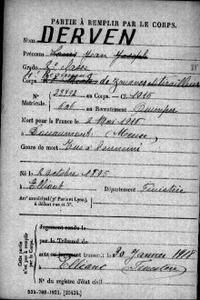 PARTIE À REMPLIR PAR LE CORPS.
DERVEN
Prénoms Louis Jean Joseph
Grade 2e classe
Corps de Zouaves tirailleurs
N° 23492 au Corps. — Cl. 1915
Matricule. au Recrutement Quimper
Mort pour la France le 2 Mai 1916
à Douaumont (Meuse)
Genre de mort Tué à l'ennemi
Né le 2 Octobre 1895
à Elliant Département Finistère
Arr' municipal (p' Paris et Lyon),
à défaut rue et N°.
Cette partie n'est pas à remplir par le corps.
Jugement rendu le
par le Tribunal de
acte ou jugement transcrit le 20 Janvier 1918
à Elliant Finistère
N° du registre d'état civil